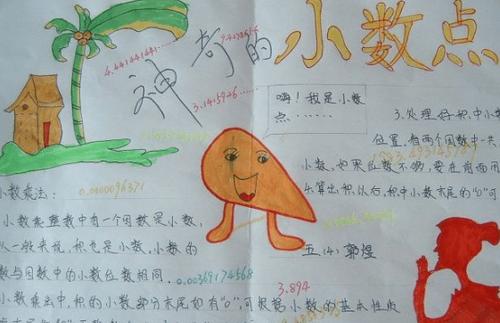 神奇的小数点
4.441441441……
7.4154154……
3.1415926……
嗨！我是小数
点……
3.处理好积中小数
位置，看两个因数中一共
小数，如果位数不够，要在前面用
算出积以后，积中小数末尾的“0”可
小数乘法：
0.0000096371
小数乘整数中有一个因数是小数，
从一般来说，积也是小数，小数的
数与因数中的小数位数相同。
0.00369174568
小数乘法中，积的小数部分末尾如有“0”，可根据小数的基本性质
五（4）郭煜
3.894